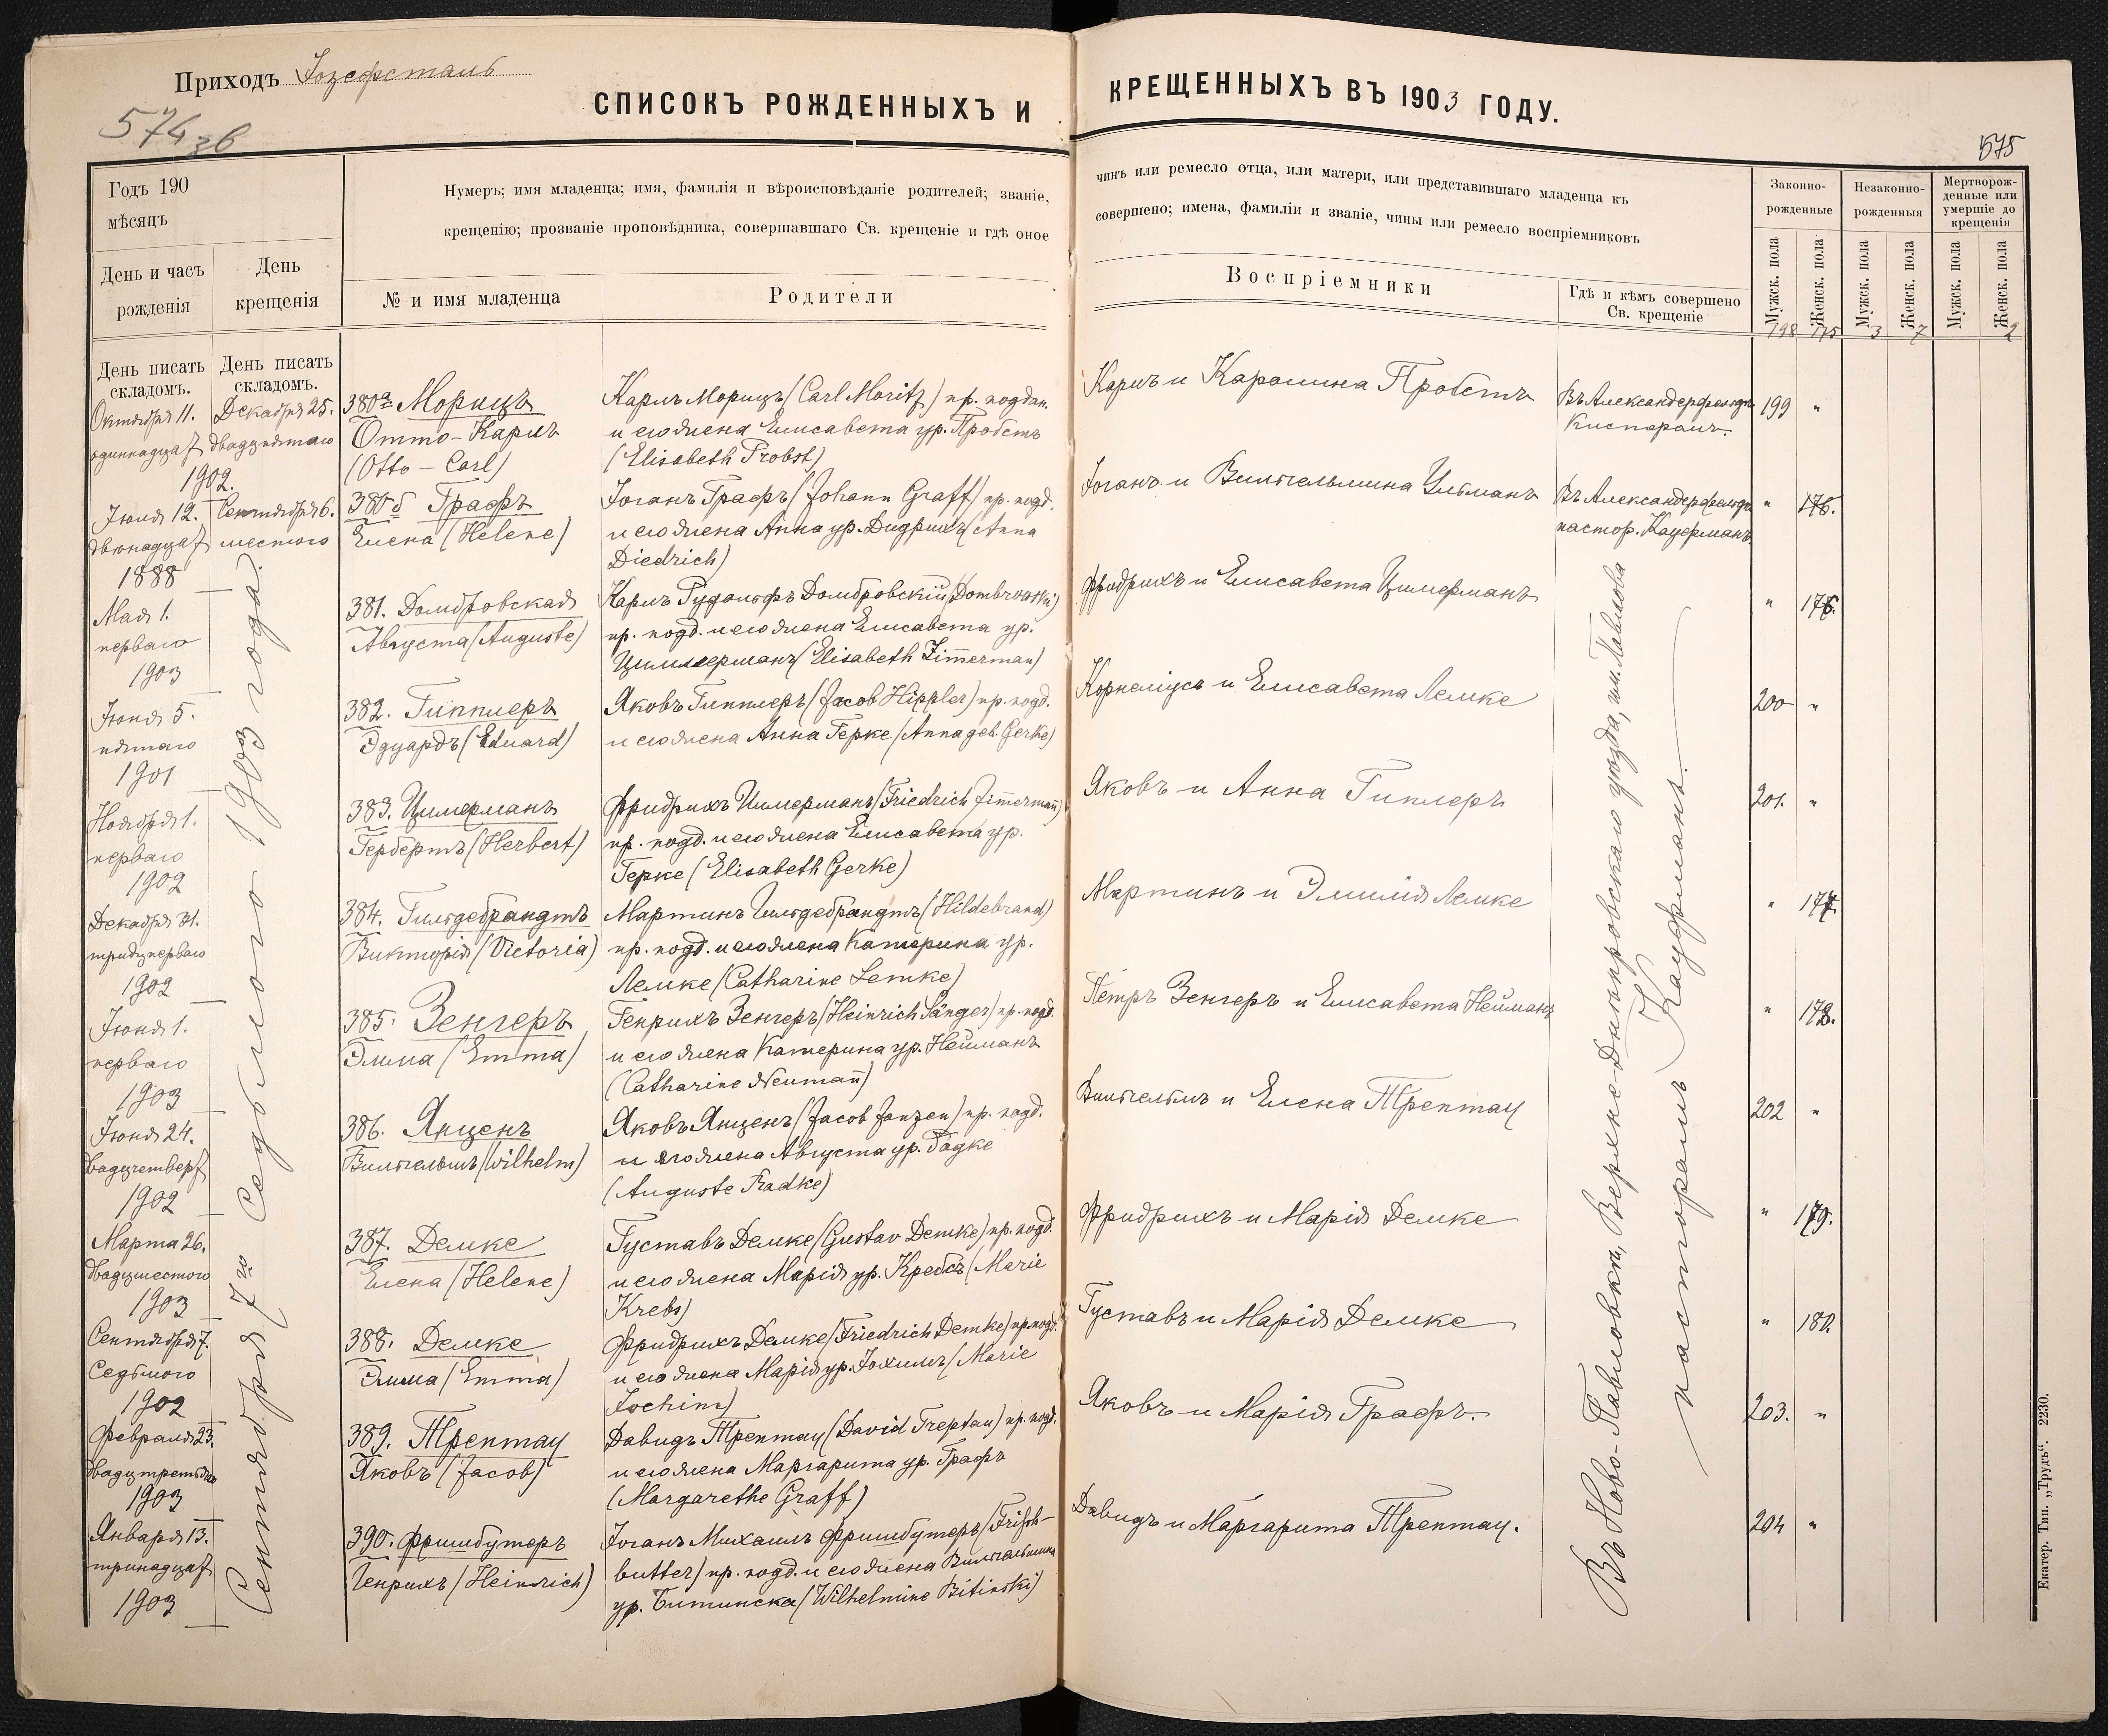 Приходъ Іозефсталь
574 зв
СПИСОКЪ РОЖДЕННЫХЪ И КРЕЩЕННЫХЪ ВЪ 1903 ГОДУ.
575
Годъ 190
мѣсяцъ
День и часъ
рожденія
День
крещенія
Нумеръ; имя младенца; имя, фамилія и вѣроисповѣданіе родителей; званіе,
чинъ или ремесло отца, или матери, или представившаго младенца къ
крещенію; прозваніе проповѣдника, совершавшаго Св. крещеніе и гдѣ оное
совершено; имена, фамиліи и званіе, чины или ремесло воспріемниковъ
№ и имя младенца
Родители
Воспріемники
Гдѣ и кѣмъ совершено
Св. крещеніе
Законно-
рожденные
Незаконно-
рожденныя
Мертворож-
денные или
умершіе до
крещенія
Мужск. пола
Женск. пола
Мужск. пола
Женск. пола
Мужск. пола
Женск. пола
198 175 3 7 2
День писать
складомъ.
День писать
складомъ.
Октября 11.
одиннадцат
1902.
Декабря 25.
двадцпятаго
380а Морицъ
Отто-Карлъ
(Otto-Carl)
Карлъ Морицъ (Carl Moritz) пр. поддан.
и его жена Елисавета ур. Пробстъ
(Elisabeth Probst)
Карлъ и Каролина Пробстъ
Въ Александерфельдѣ
Кисторомъ.
199 "
Іюля 12.
двѣнадцат
1888
Сентября 6.
шестого
380б Графъ
Елена (Helene)
Іоганъ Графъ (Johann Graff) пр. подд.
и его жена Анна ур. Дидрихъ (Anna
Diedrich)
Іоганъ и Вильгельмина Ульманъ
Въ Александерфельдѣ
пастор. Кауфманъ
" 176.
Мая 1.
перваго
1903
381. Домбровская
Августа (Auguste)
Карлъ Рудольфъ Домбровскій (Dombrowski)
пр. подд. и его жена Елисавета ур.
Циммерманъ (Elisabeth Zimerman)
Фридрихъ и Елисавета Цимерманъ
"
Іюня 5.
пятаго
1901
382. Гипплеръ
Эдуардъ (Eduard)
Яковъ Гипплеръ (Jacob Hippler) пр. подд.
и его жена Анна Герке (Anna geb. Gerke)
Корнеліусъ и Елисавета Лемке
200 "
Ноября 1.
перваго
1902
383. Цимерманъ
Гербертъ (Herbert)
Фридрихъ Цимерманъ (Friedrich Zimerman)
пр. подд. и его жена Елисавета ур.
Герке (Elisabeth Gerke)
Яковъ и Анна Гиплеръ
201. "
Декабря 31.
тридцперваго
1902
384. Гильдебрандтъ
Викторія (Victoria)
Мартинъ Гильдебрандтъ (Hildebrand)
пр. подд. и его жена Катерина ур.
Лемке (Catharine Lemke)
Мартинъ и Эмилія Лемке
" 177
Іюня 1.
перваго
1903
385. Зенгеръ
Эмма (Emma)
Генрихъ Зенгеръ (Heinrich Sänger) пр. подд.
и его жена Катерина ур. Нейманъ
(Catharine Neuman)
Петръ Зенгеръ и Елисавета Нейманъ
" 178.
Іюня 24.
двадцчетверт
1902
386. Янценъ
Вильгельмъ (Wilhelm)
Яковъ Янценъ (Jacob Janzen) пр. подд.
и его жена Августа ур. Радке
(Auguste Radke)
Вильгельмъ и Елена Трептау
202 "
Марта 26.
двадцшестого
1903
387. Демке
Елена (Helene)
Густавъ Демке (Gustav Demke) пр. подд.
и его жена Марія ур. Кребсъ (Marie
Krebs)
Фридрихъ и Марія Демке
" 179.
Сентября 7.
Седьмого
1902
388. Демке
Эмма (Emma)
Фридрихъ Демке (Friedrich Demke) пр. подд.
и его жена Марія ур. Іохимъ (Marie
Jochim)
Густавъ и Марія Демке
" 180.
Февраля 23.
двадцтретьяго
1903
389. Трептау
Яковъ (Jacob)
Давидъ Трептау (David Treptau) пр. подд.
и его жена Маргарита ур. Графъ
(Margarethe Graff)
Яковъ и Марія Графъ.
203. "
Января 13.
тринадцат
1903
390. Фришбутеръ
Генрихъ (Heinrich)
Іоганъ Михаилъ Фришбутеръ (Frisch-
butter) пр. подд. и его жена Вильгельмина
ур. Битинска (Wilhelmine Bitinski)
Давидъ и Маргарита Трептау.
204 "
Сентября 7го Седьмого 1903 года.
Въ Ново-Павловкѣ, Верхне-Днѣпровскаго уѣзда, им. Павлова
пасторомъ Кауфманъ.
Екатер. Тип. „Трудъ“. 2230.